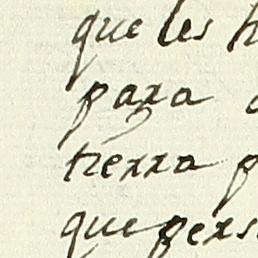 que les
para
tierra
que pers